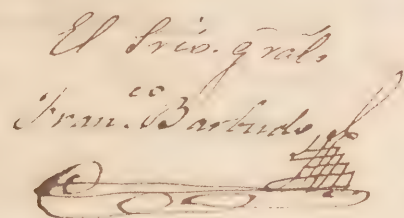 El Srio. gral.
Fran.co Barbudo